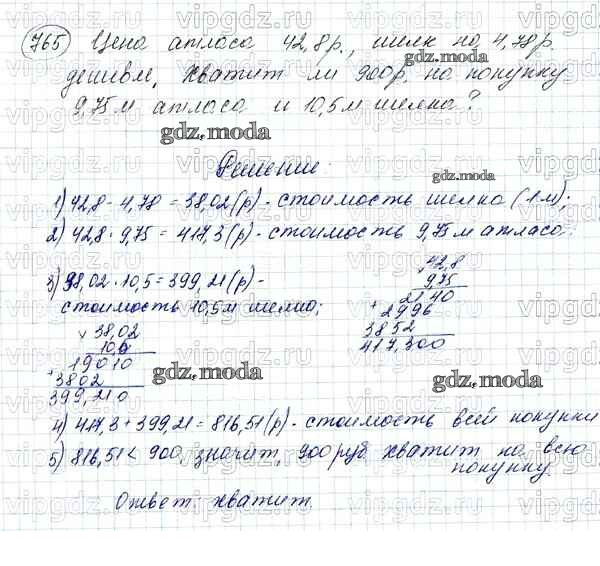 765 Цена атласа 42,8р., шелк на 4,78р.
дешевле, хватит ли 900р на покупку
9,75м атласа и 10,5м шелка?
gdz.moda
Решение:
gdz.moda
1) 42,8 - 4,78 = 38,02(р) - стоимость шелка (1м);
2) 42,8 · 9,75 = 417,3(р) - стоимость 9,75м атласа;
3) 38,02 · 10,5 = 399,21(р) -
стоимость 10,5м шелка;
× 42,8
9,75
2140
+ 2996
3852
417,300
× 38,02
10,5
19010
+ 3802
399,210
gdz.moda
gdz.moda
4) 417,3 + 399,21 = 816,51(р) - стоимость всей покупки
5) 816,51 < 900, значит, 900 руб хватит на всю
покупку.
Ответ: хватит.
vipgdz.ru